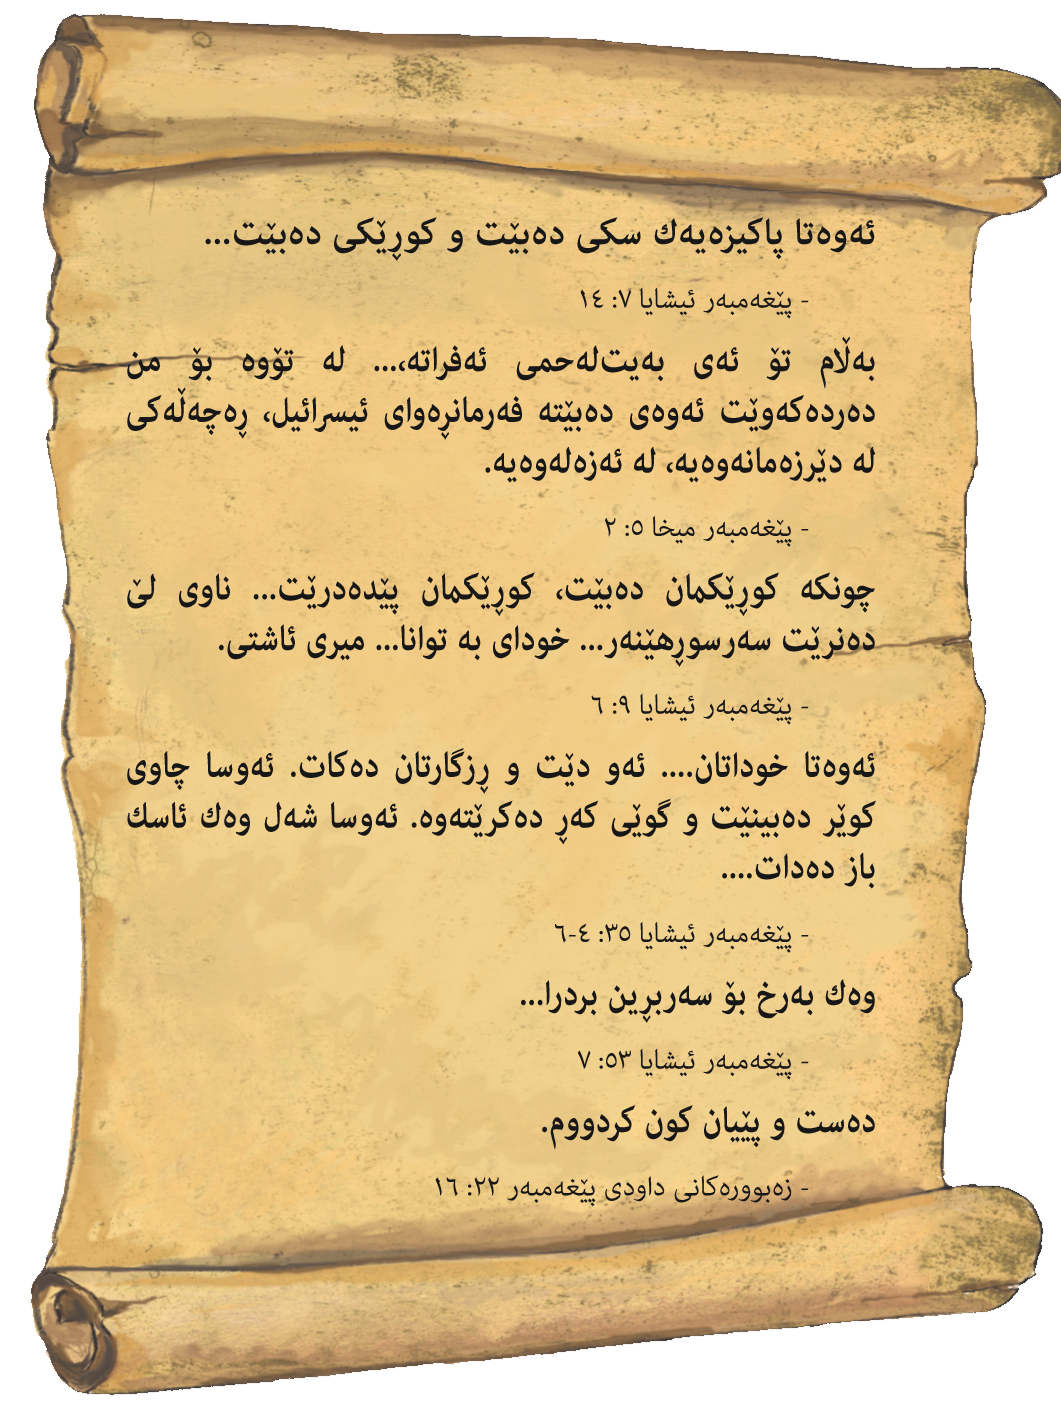 ئەوەتا پاکیزەیەك سکی دەبێت و کوڕێکی دەبێت...
- پێغەمبەر ئیشایا ٧: ١٤
بەڵام تۆ ئەی بەیت‌لەحمی ئەفراتە،... لە تۆوە بۆ من
دەردەکەوێت ئەوەی دەبێتە فەرمانڕەوای ئیسرائیل، ڕەچەڵەکی
لە دێرزەمانەوەیە، لە ئەزەلەوەیە.
- پێغەمبەر میخا ٥: ٢
چونکە کوڕێکمان دەبێت، کوڕێکمان پێدەدرێت... ناوی لێ
دەنرێت سەرسوڕهێنەر... خودای بە توانا... میری ئاشتی.
- پێغەمبەر ئیشایا ٩: ٦
ئەوەتا خوداتان.... ئەو دێت و ڕزگارتان دەکات. ئەوسا چاوی
کوێر دەبینێت و گوێی کەڕ دەکرێتەوە. ئەوسا شەل وەك ئاسك
باز دەدات....
- پێغەمبەر ئیشایا ٣٥: ٤-٦
وەك بەرخ بۆ سەربڕین بردرا...
- پێغەمبەر ئیشایا ٥٣: ٧
دەست و پێیان کون کردووم.
- زەبوورەکانی داودی پێغەمبەر ٢٢: ١٦